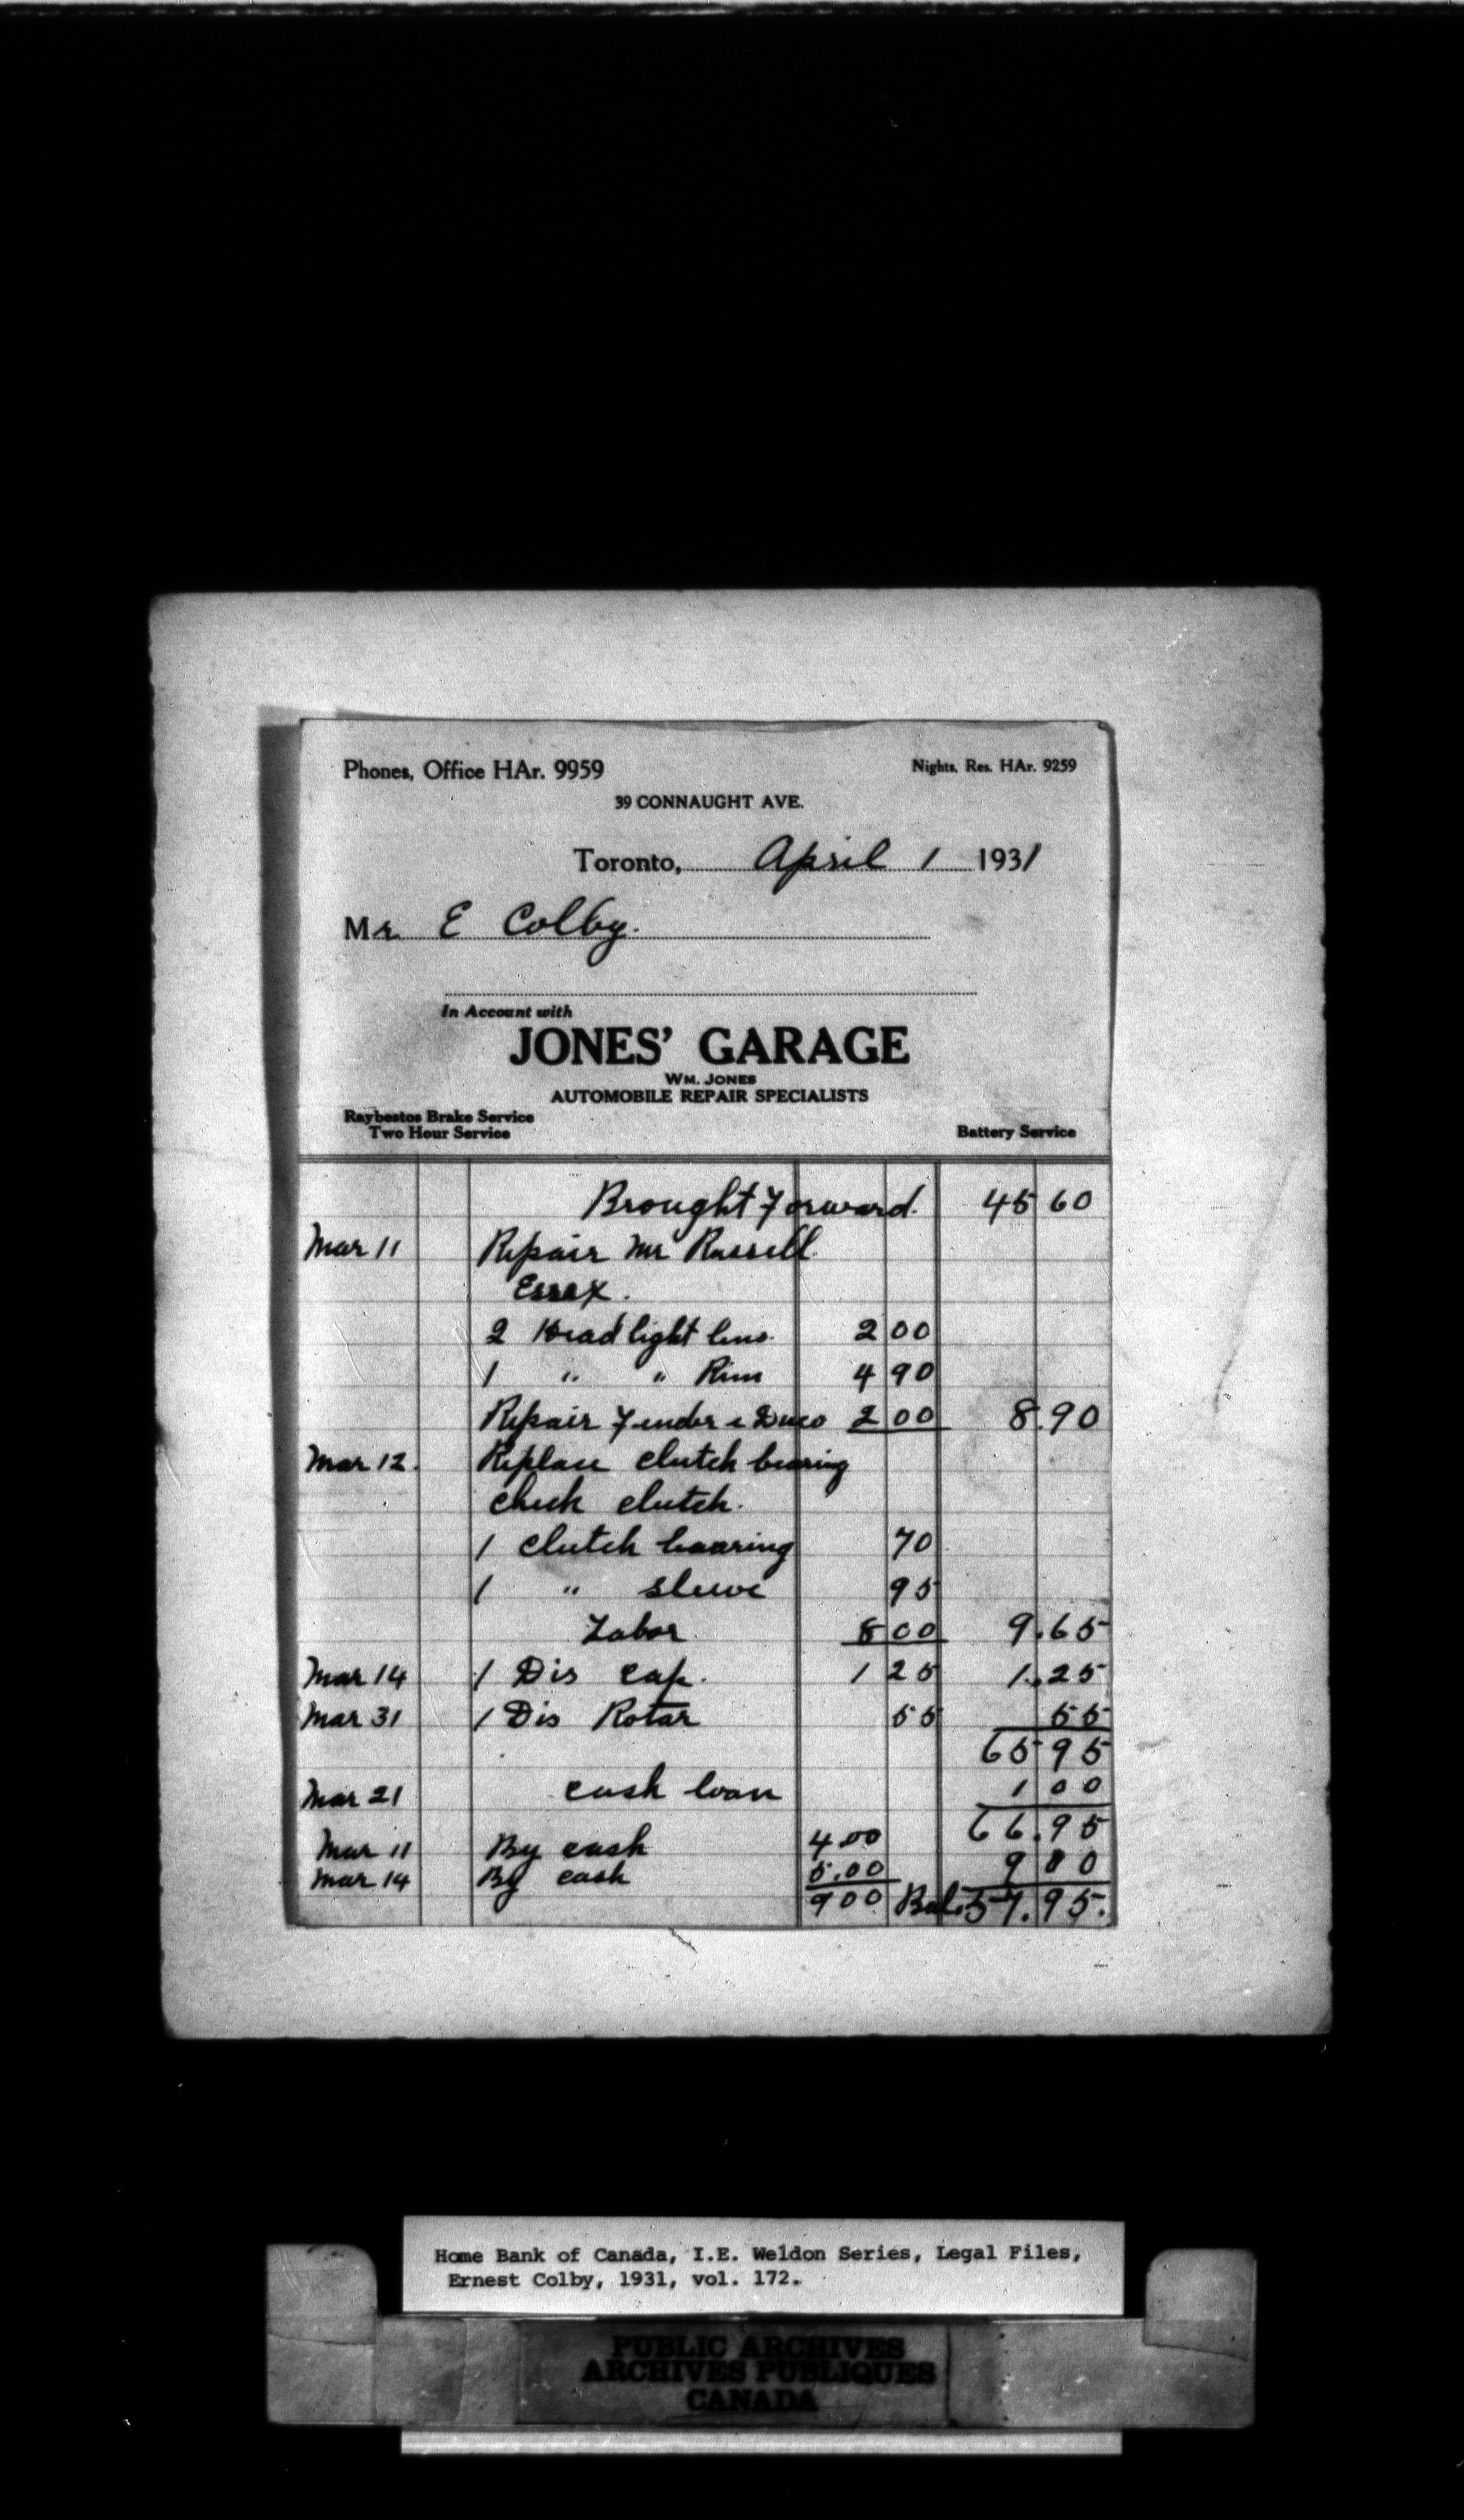 Phones, Office HAr. 9959 Nights, Res. HAr. 9259
39 CONNAUGHT AVE.
Toronto, April 1 1931
Mr. E Colby.
In Account with
JONES' GARAGE
WM. JONES
AUTOMOBILE REPAIR SPECIALISTS
Raybestos Brake Service
Two Hour Service Battery Service
Brought Forward. 45 60
Mar 11 Repair Mr Russell
Essex.
2 Head light lens. 2 00
1 " " Rim 4 90
Repair Fender & Duco 2 00 8.90
Mar 12. Replace clutch bearing
check clutch.
1 clutch bearing 70
1 " sleeve 95
Labor 8 00 9.65
Mar 14 1 Dis cap. 1 25 1.25
Mar 31 1 Dis Rotar 55 55
65 95
Mar 21 cash loan 1 00
66.95
Mar 11 By cash 4.00
Mar 14 By cash 5.00 9 00
9 00 Bal. 57.95.
Home Bank of Canada, I.E. Weldon Series, Legal Files,
Ernest Colby, 1931, vol. 172.
PUBLIC ARCHIVES
ARCHIVES PUBLIQUES
CANADA